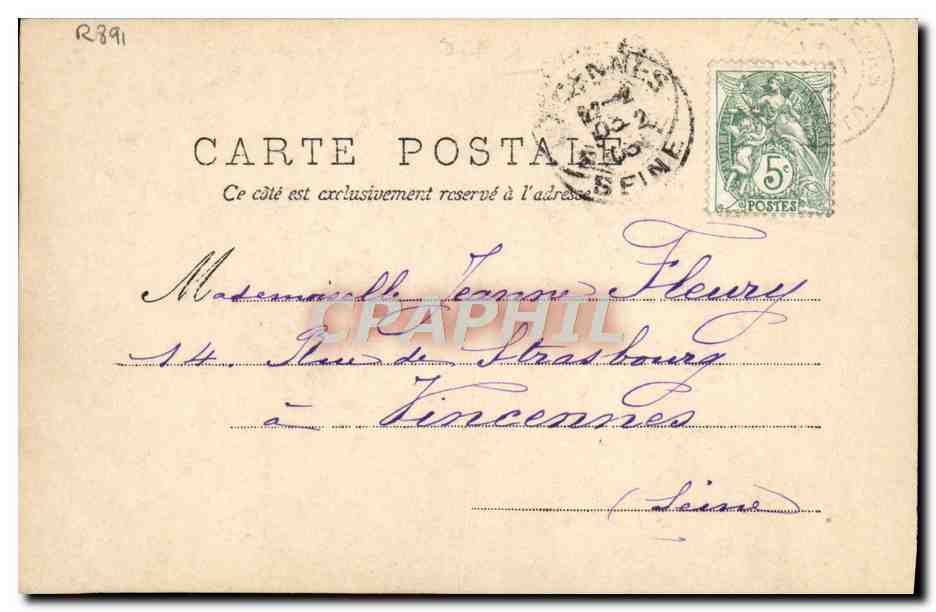 R891
CARTE POSTALE
Ce côté est exclusivement reservé à l'adresse
CENNES
SEINE
5c
POSTES
Mademoiselle Jeanne Fleury
CPAPHIL
14. Rue de Strasbourg
à Vincennes
(Seine)